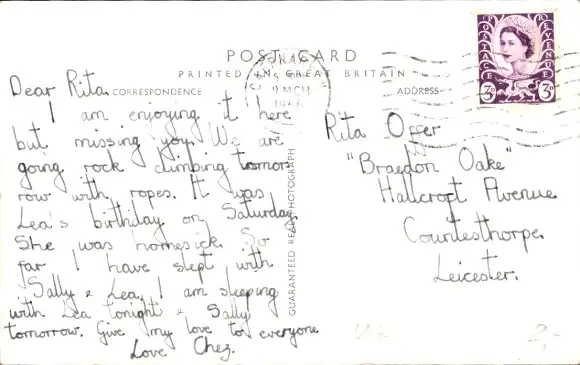 POST CARD
PRINTED IN GREAT BRITAIN
CORRESPONDENCE
ADDRESS
Dear Rita.
I am enjoying it here
but missing you. We are
going rock climbing tomor-
row with ropes. It was
Lea's birthday on Saturday.
She was homesick. So
far I have slept with
Sally & Lea. I am sleeping
with Lea tonight & Sally
tomorrow. Give my love to everyone
Love Chez.
GUARANTEED REAL PHOTOGRAPH
POSTAGE
REVENUE
3D
3D
Rita Offer
"Braedon Oake"
Hallcroft Avenue
Countesthorpe.
Leicester.
2,-